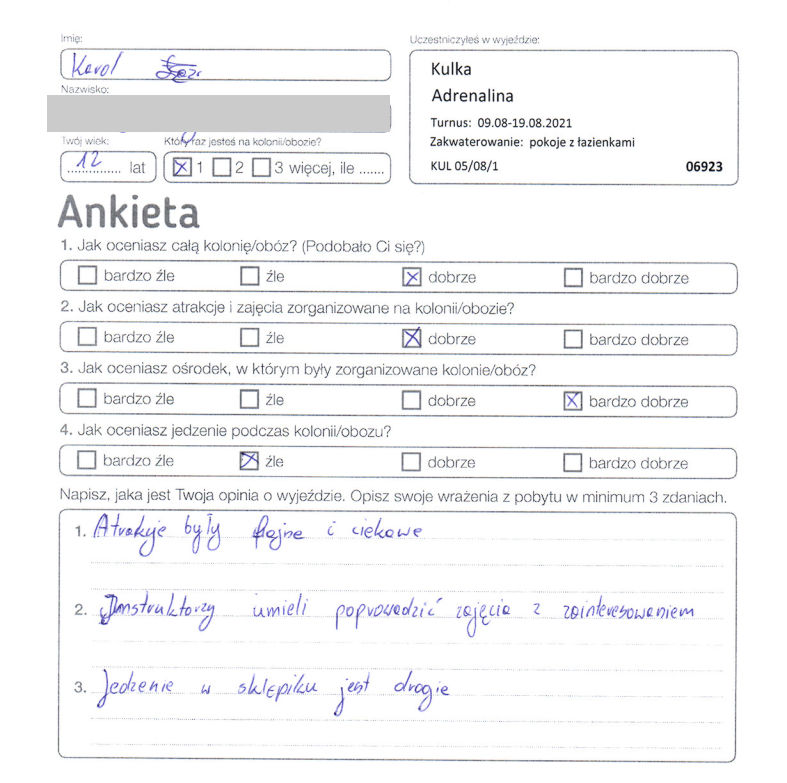 Imię:
Karol
Nazwisko:
Twój wiek:
12 lat
Który raz jesteś na kolonii/obozie?
1 2 3 więcej, ile .......
Uczestniczyłeś w wyjeździe:
Kulka
Adrenalina
Turnus: 09.08-19.08.2021
Zakwaterowanie: pokoje z łazienkami
KUL 05/08/1 06923
Ankieta
1. Jak oceniasz całą kolonię/obóz? (Podobało Ci się?)
bardzo źle źle dobrze bardzo dobrze
2. Jak oceniasz atrakcje i zajęcia zorganizowane na kolonii/obozie?
bardzo źle źle dobrze bardzo dobrze
3. Jak oceniasz ośrodek, w którym były zorganizowane kolonie/obóz?
bardzo źle źle dobrze bardzo dobrze
4. Jak oceniasz jedzenie podczas kolonii/obozu?
bardzo źle źle dobrze bardzo dobrze
Napisz, jaka jest Twoja opinia o wyjeździe. Opisz swoje wrażenia z pobytu w minimum 3 zdaniach.
1. Atrakcje były fajne i ciekawe
2. Instruktorzy umieli poprowadzić zajęcia z zainteresowaniem
3. Jedzenie w sklepiku jest drogie